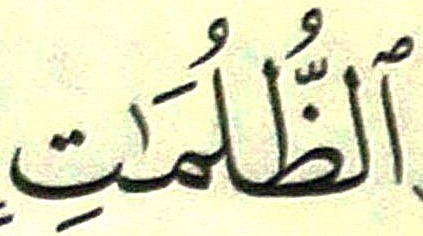 ٱلظُّلُمَٰتِ